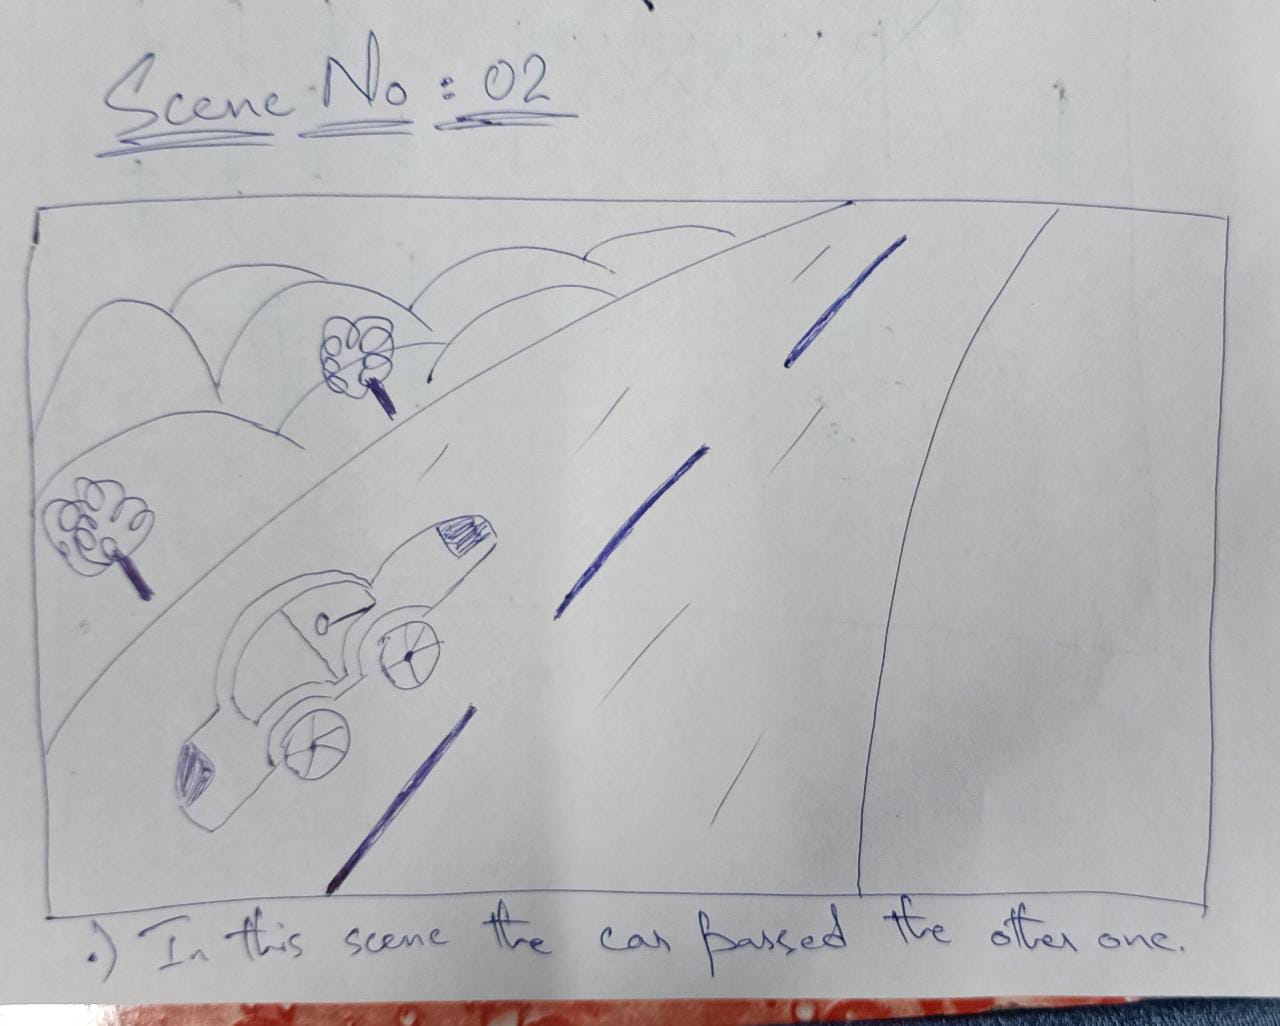 Scene No: 02
.) In this scene the car passed the other one.